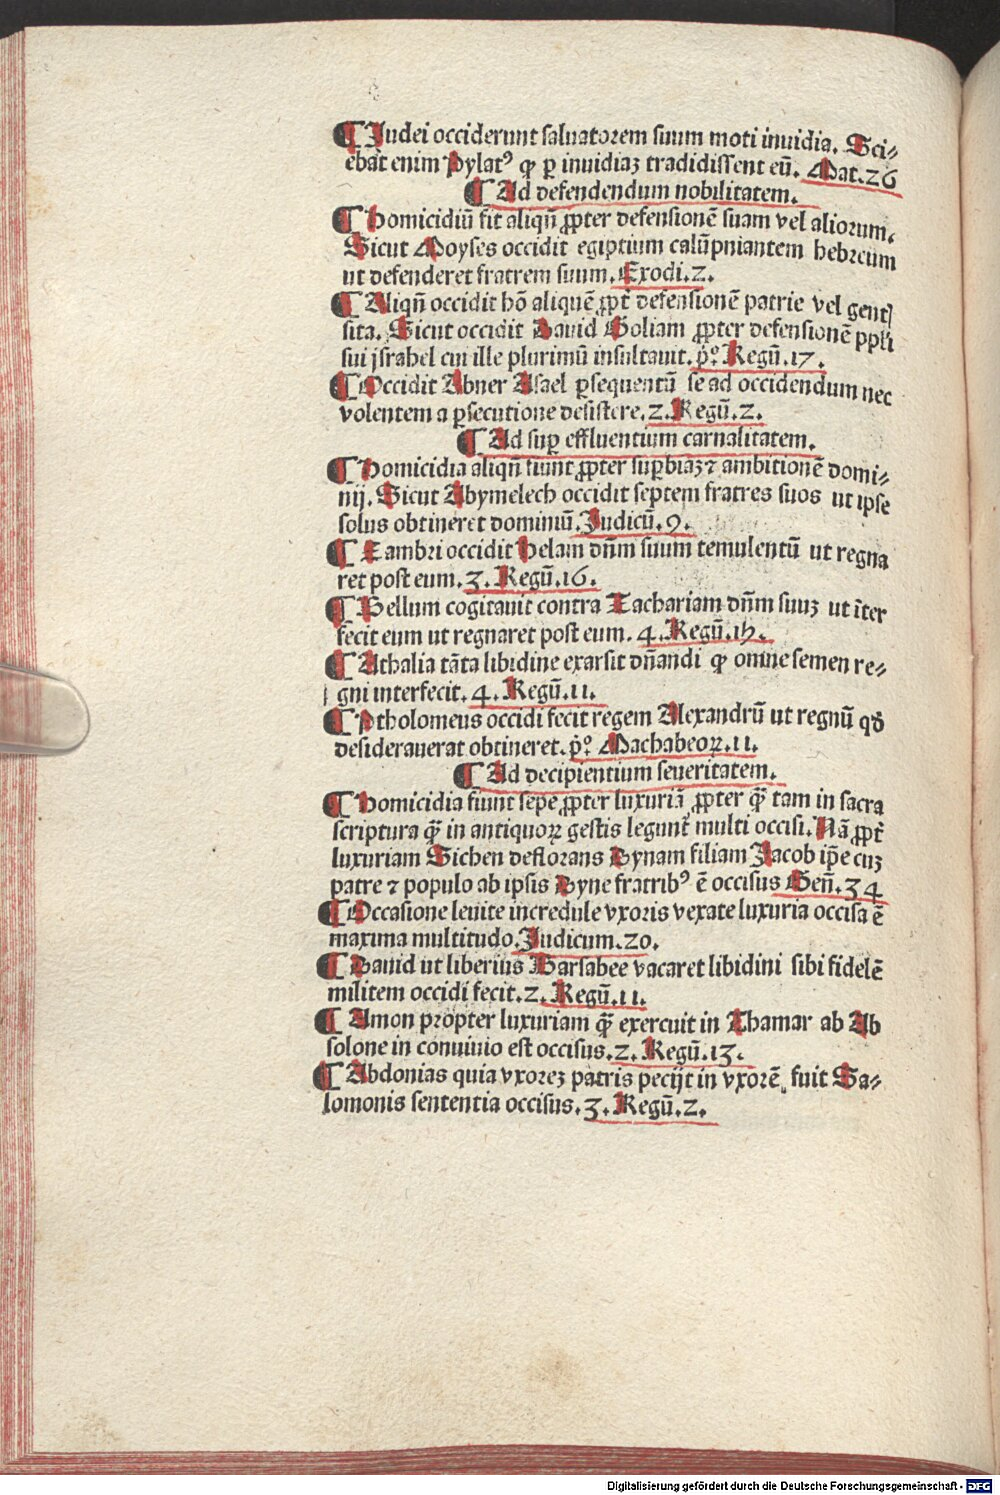 ¶ Judei occiderunt saluatorem suum moti inuidia. Sci⸗
ebat enim Pylatꝰ ꝙ ꝑ inuidiaꝫ tradidissent eū. Mat. 26
¶ Ad defendendum nobilitatem.
¶ Homicidiū fit aliqn̄ ꝓpter defensionē suam vel aliorum.
Sicut Moyses occidit egiptium calūpniantem hebreum
ut defenderet fratrem suum. Exodi. 2.
¶ Aliqn̄ occidit hō aliquē ꝓpt̄ defensionē patrie vel gentꝭ
sita. Sicut occidit Dauid Goliam ꝓpter defensionē ppl̄i
sui jsrahel cui ille plurimū insultauit. pͦ. Regū. 17.
¶ Occidit Abner Asael ꝑsequentū se ad occidendum nec
volentem a ꝑsecutione desistere. 2. Regū. 2.
¶ Ad suꝑ effluentium carnalitatem.
¶ Homicidia aliqn̄ fiunt ꝓpter suꝑbiaꝫ ⁊ ambitionē domi⸗
nij. Sicut Abymelech occidit septem fratres suos ut ipse
solus obtineret dominiū. Judicū. 9.
¶ Zambri occidit Helam dn̄m suum temulentū ut regna
ret post eum. 3. Regū. 16.
¶ Sellum cogitauit contra Zachariam dn̄m suuꝫ ut īter
fecit eum ut regnaret post eum. 4. Regū. 15.
¶ Athalia tāta libidine exarsit dn̄andi ꝙ omne semen re⸗
gni interfecit. 4. Regū. 11.
¶ Ptholomeus occidi fecit regem Alexandrū ut regnū qď
desiderauerat obtineret. pͦ. Machabeoꝝ. 11.
¶ Ad decipientium seueritatem.
¶ Homicidia fiunt sepe ꝓpter luxuriā ꝓpter qꝫ̄ tam in sacra
scriptura qꝫ̄ in antiquoꝝ gestis legunt̄ multi occisi. Nā ꝓpt̄
luxuriam Sichen deflorans Dynam filiam Jacob ip̄e cuꝫ
patre ⁊ populo ab ipsis Dyne fratribꝰ ē occisus Gen̄. 34
¶ Occasione leuite incredule vxoris vexate luxuria occisa ē
maxima multitudo. Judicum. 20.
¶ Dauid ut liberius Barsabee vacaret libidini sibi fidelē
militem occidi fecit. 2. Regū. 11.
¶ Amon propter luxuriam qꝫ̄ exercuit in Thamar ab Ab
solone in conuiuio est occisus. 2. Regū. 13.
¶ Abdonias quia vxoreꝫ patris pecijt in vxorē, fuit Sa⸗
lomonis sententia occisus. 3. Regū. 2.
Digitalisierung gefördert durch die Deutsche Forschungsgemeinschaft - DFG